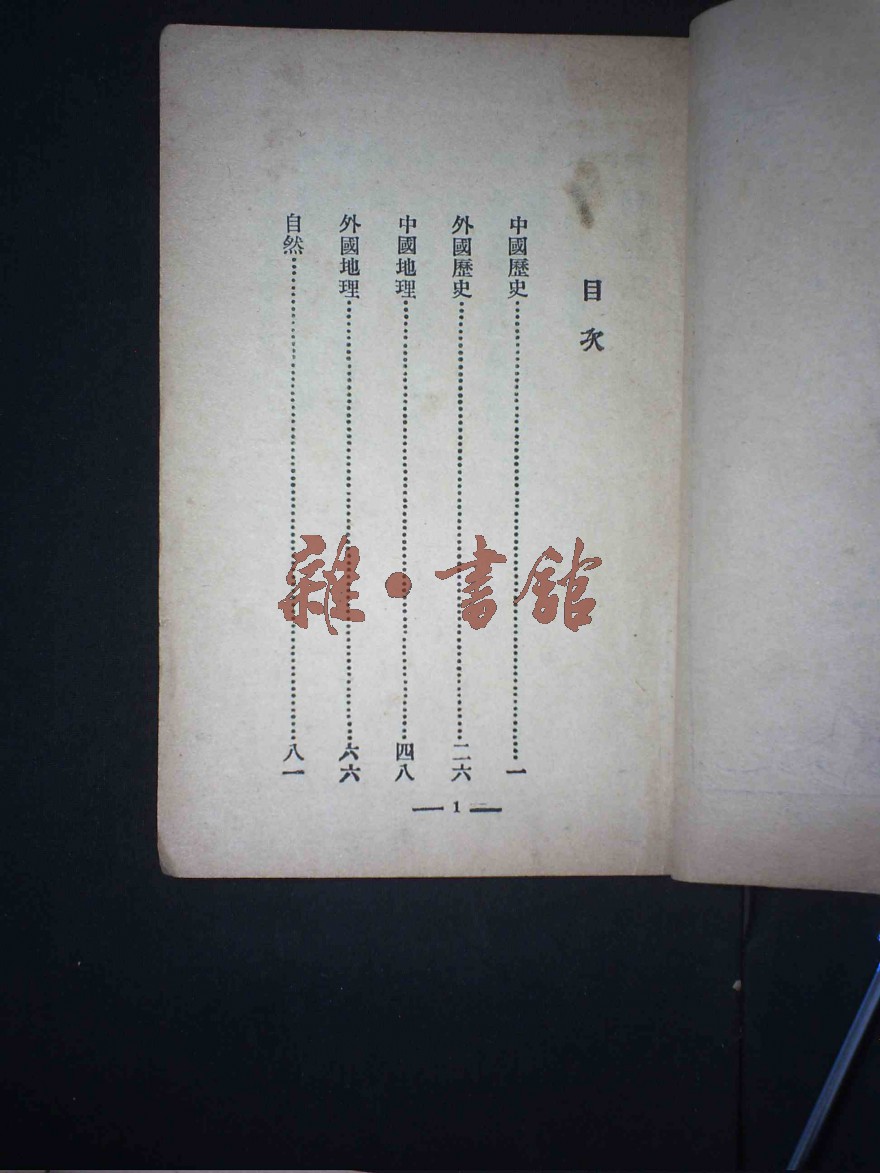 目次
中國歷史……………………一
外國歷史……………………二六
中國地理……………………四八
外國地理……………………六六
自然……………………八一
— 1 —
雜·書館